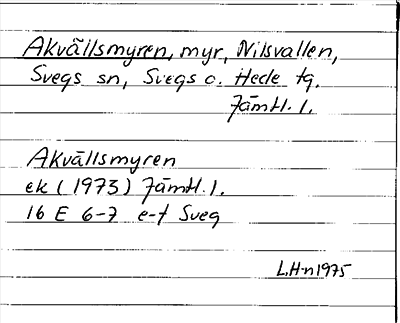 Akvällsmyren, myr, Nilsvallen,
Svegs sn, Svegs o. Hede tg.
Jämtl. l.
Akvällsmyren
ek (1973) Jämtl. l.
16 E 6-7 e-f Sveg
L.H-n 1975